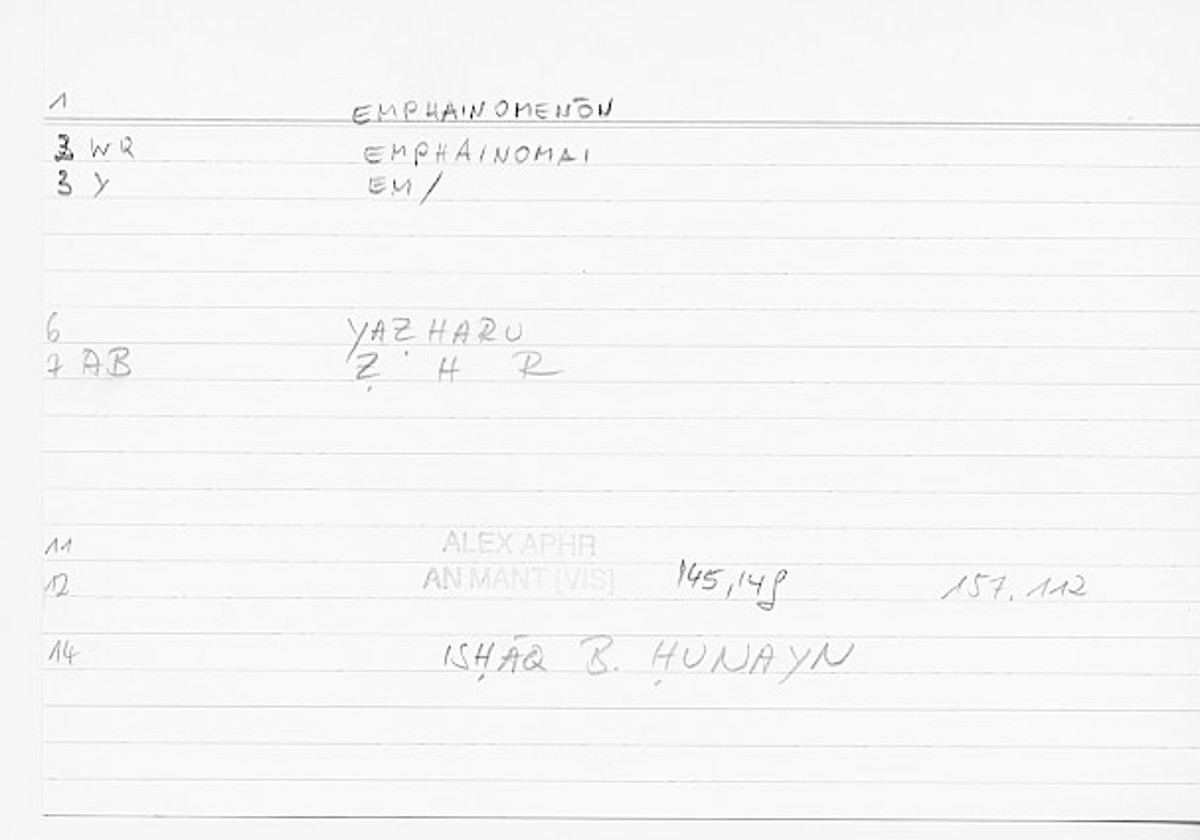 1 EMPHAINOMENŌN
2 WQ EMPHAINOMAI
3 Y EM/
6 YAẒHARU
7 AB Ẓ H R
11 ALEX APHR
12 AN MANT [VIS] 145,14f 157.112
14 ISḤĀQ B. ḤUNAYN